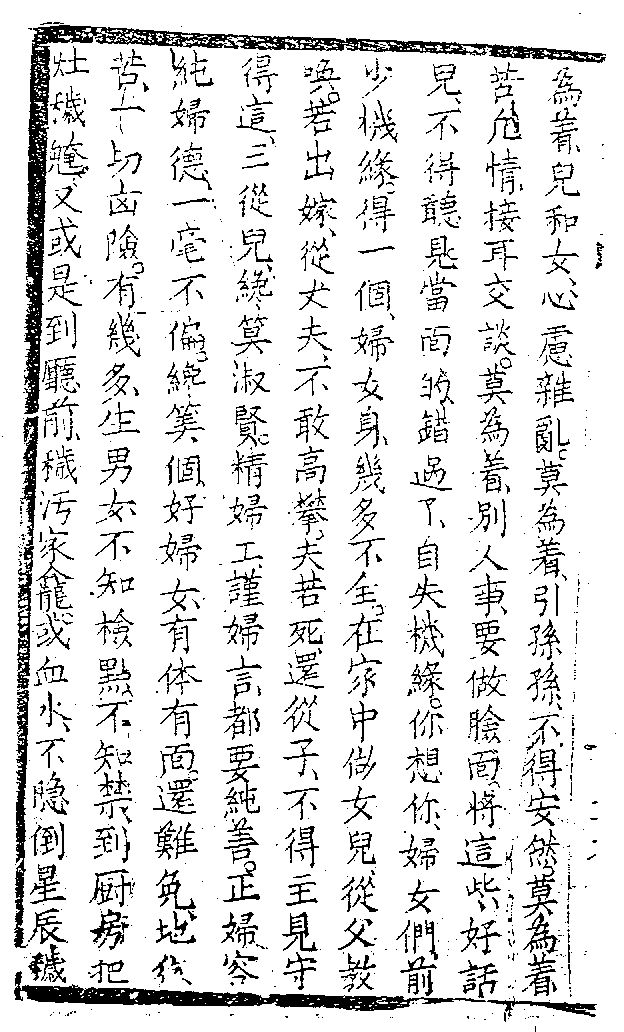 為着、兒和女、心慮雜亂。莫為着、引孫孫、不得安然。莫為着
苦、凡情、接耳交談。莫為着、別人事、要做臉面。將這些、好話
兒、不得聽、是當面的、錯過了、自失機緣。你想你、婦女們、前
少機緣。得一個、婦女身、幾多不全。在家中做女兒、從父教
喚。若出嫁、從丈夫、不敢高攀。夫若死、還從子、不得主見守
得這、三從兒、纔算淑賢。精婦工、謹婦言、都要純善。正婦容
純婦德、一毫不偏。纔算個、好婦女、有体有面。還難免、地獄
苦、一切凶險。有幾多、生男女、不知檢點。不知禁、到厨房、把
灶穢醃。又或是到廳前、穢汚家龕。或血水、不隐倒星辰穢